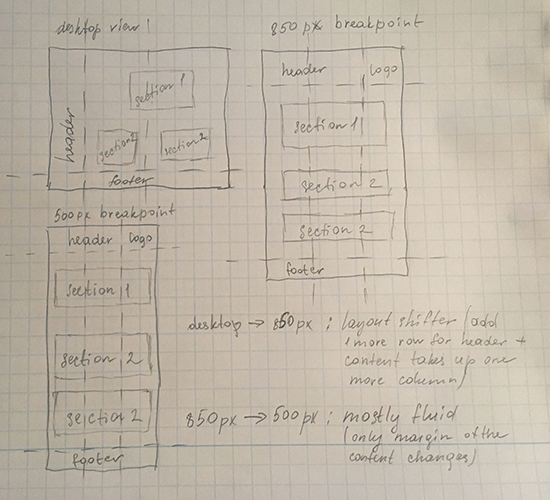 desktop view
header
section 1
section 2
section 2
footer
850 px breakpoint
header logo
section 1
section 2
section 2
footer
500px breakpoint
header logo
section 1
section 2
section 2
footer
desktop → 850px : layout shifter (add
1 more row for header +
content takes up one
more column)
850px → 500px : mostly fluid
(only margin of the
content changes)